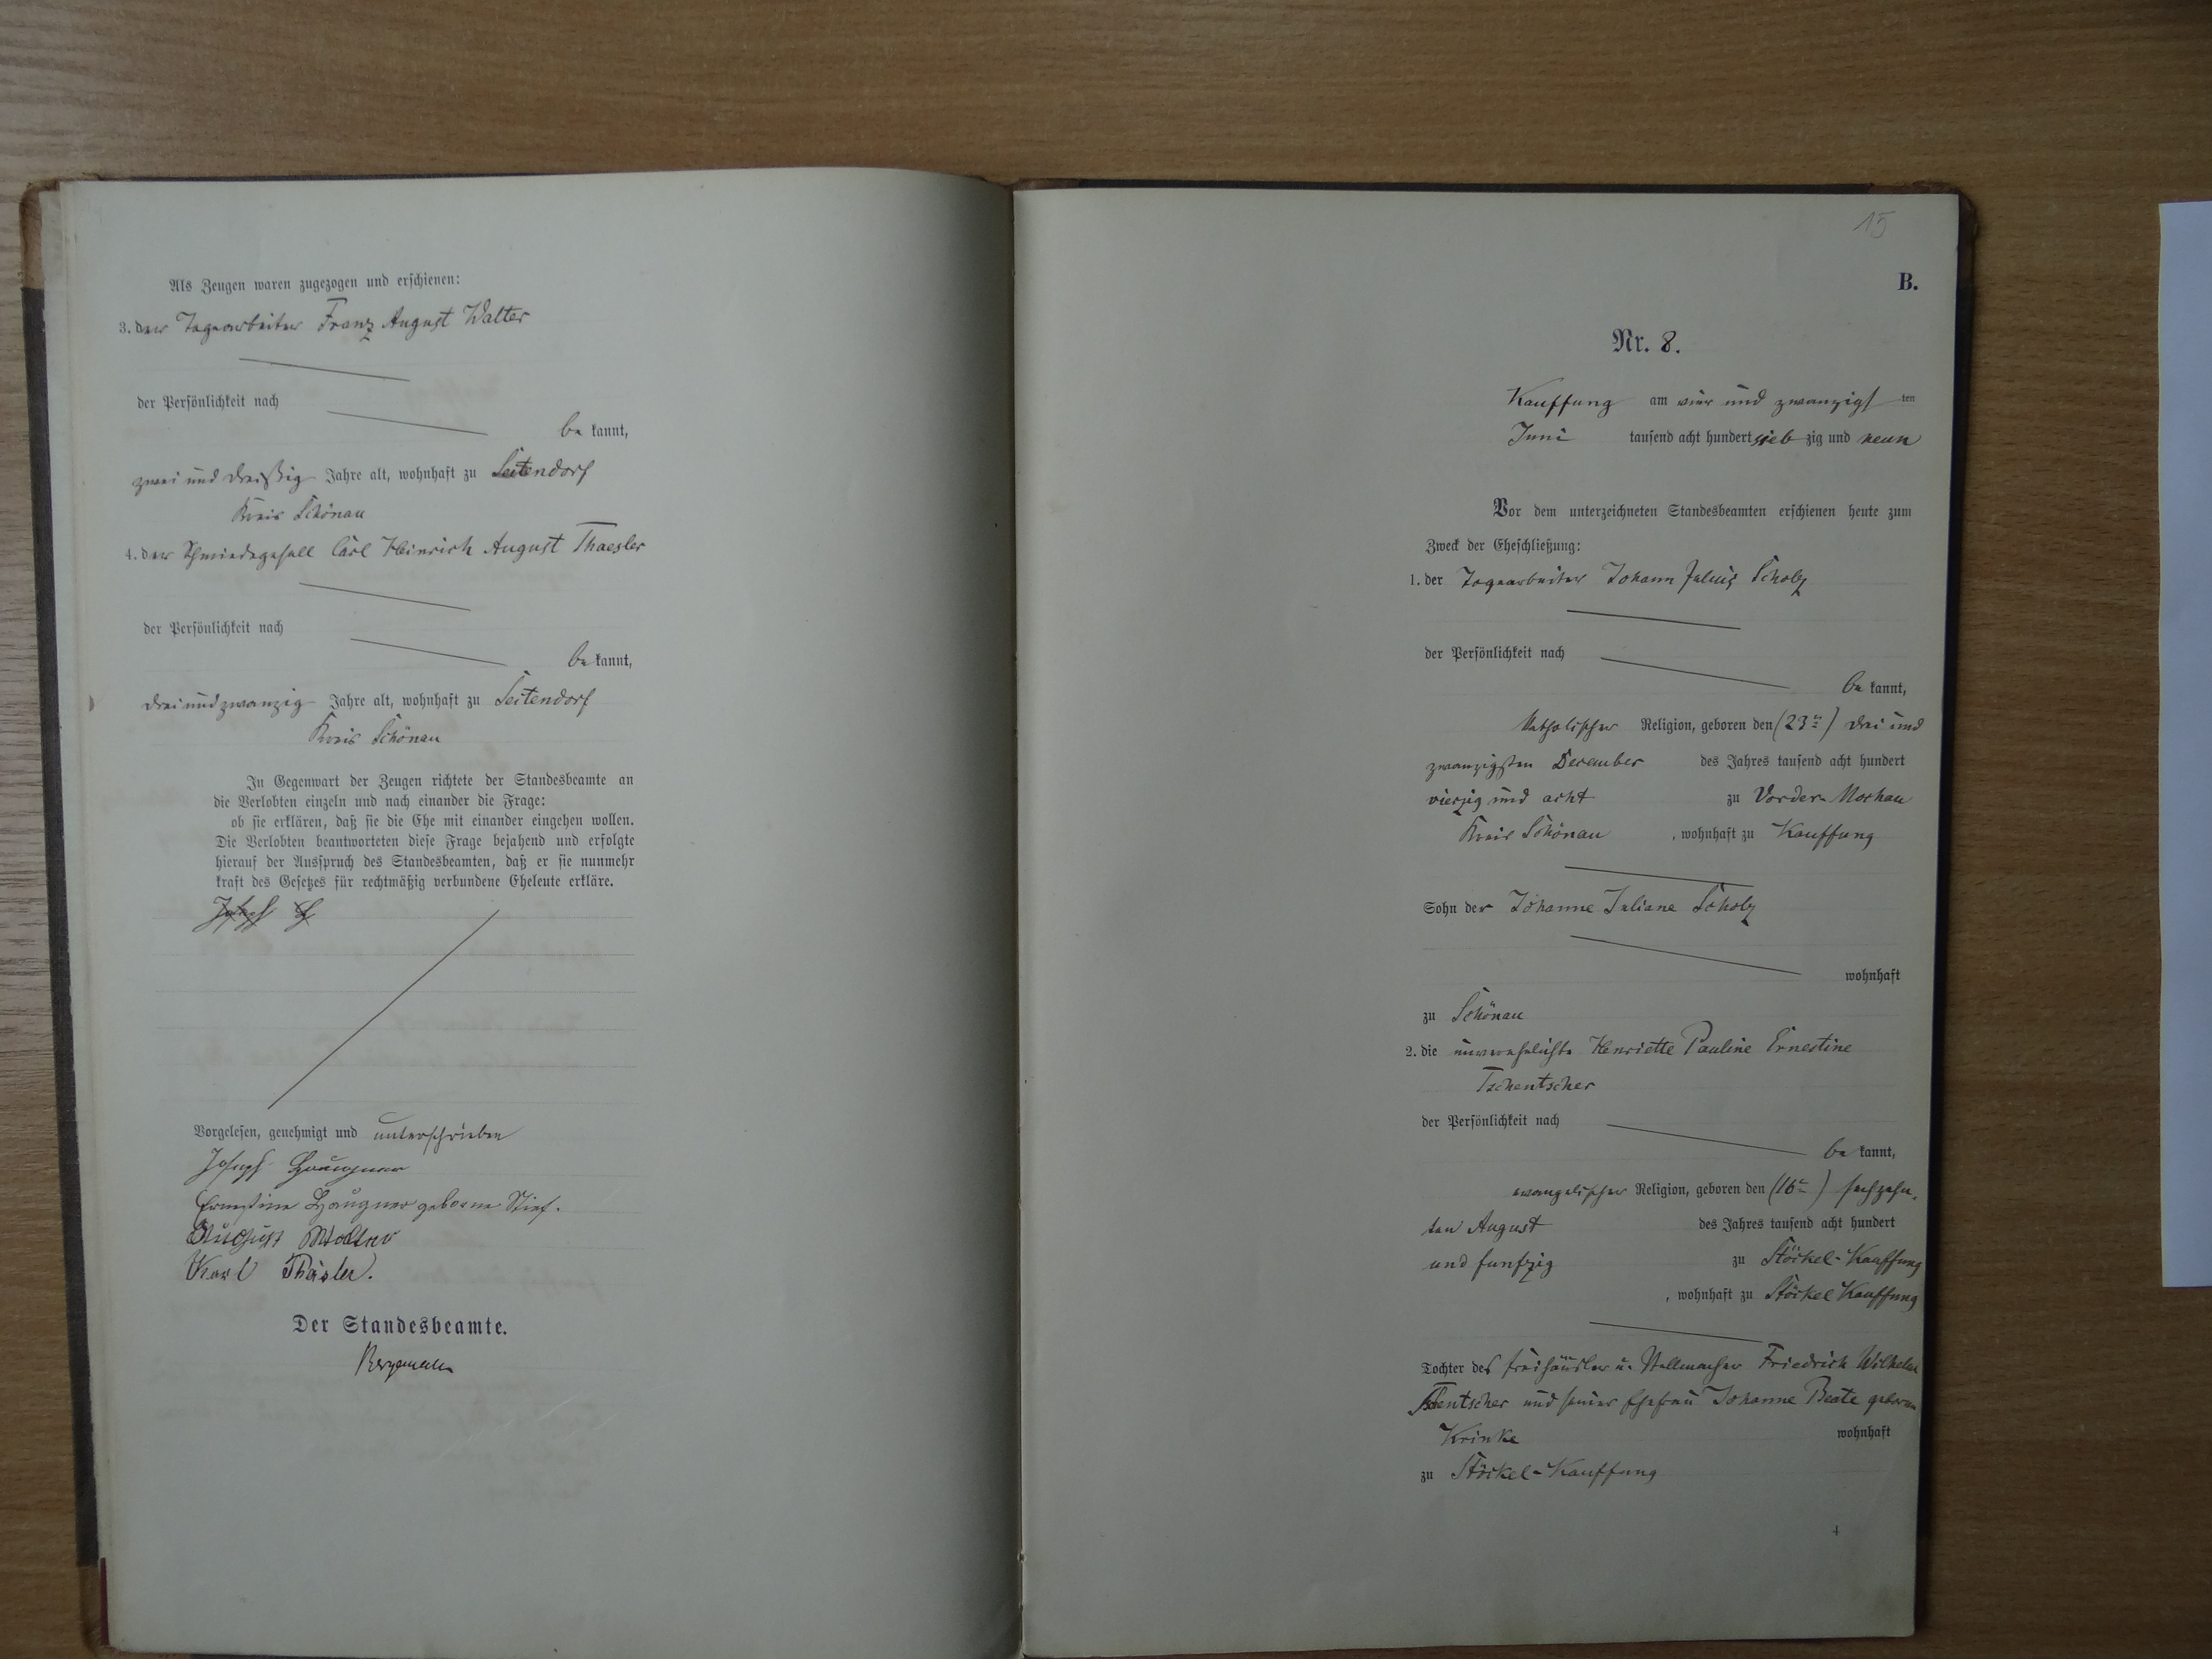 Als Zeugen waren zugezogen und erschienen:
3. der Tagearbeiter Franz August Walter
der Persönlichkeit nach
be kannt,
zwei und dreißig Jahre alt, wohnhaft zu Seitendorf
Kreis Schönau
4. der Schmiedegesell Carl Heinrich August Thaesler
der Persönlichkeit nach
be kannt,
drei und zwanzig Jahre alt, wohnhaft zu Seitendorf
Kreis Schönau
In Gegenwart der Zeugen richtete der Standesbeamte an
die Verlobten einzeln und nach einander die Frage:
ob sie erklären, daß sie die Ehe mit einander eingehen wollen.
Die Verlobten beantworteten diese Frage bejahend und erfolgte
hierauf der Ausspruch des Standesbeamten, daß er sie nunmehr
kraft des Gesetzes für rechtmäßig verbundene Eheleute erkläre.
Vorgelesen, genehmigt und unterschrieben
Joseph Haugner
Ernestine Haugner geborne Stief.
August Walter
Karl Thäsler.
Der Standesbeamte.
15
B.
Nr. 8.
Kauffung am vier und zwanzigst ten
Juni tausend acht hundert sieb zig und neun
Vor dem unterzeichneten Standesbeamten erschienen heute zum
Zweck der Eheschließung:
1. der Tagearbeiter Johann Julius Scholz
der Persönlichkeit nach
be kannt,
katholischer Religion, geboren den (23ten) drei und
zwanzigsten December des Jahres tausend acht hundert
vierzig und acht zu Vorder-Mochau
Kreis Schönau, wohnhaft zu Kauffung
Sohn der Johanne Juliane Scholz
wohnhaft
zu Schönau
2. die unverehelichte Henriette Pauline Ernestine
Tschentscher
der Persönlichkeit nach
be kannt,
evangelischer Religion, geboren den (16ten) sechzehn-
ten August des Jahres tausend acht hundert
und funfzig zu Stöckel-Kauffung
, wohnhaft zu Stöckel Kauffung
Tochter des Freihäusler u. Stellmacher Friedrich Wilhelm
Tschentscher und seiner Ehefrau Johanne Beate geborne
Krinke wohnhaft
zu Stöckel-Kauffung
4